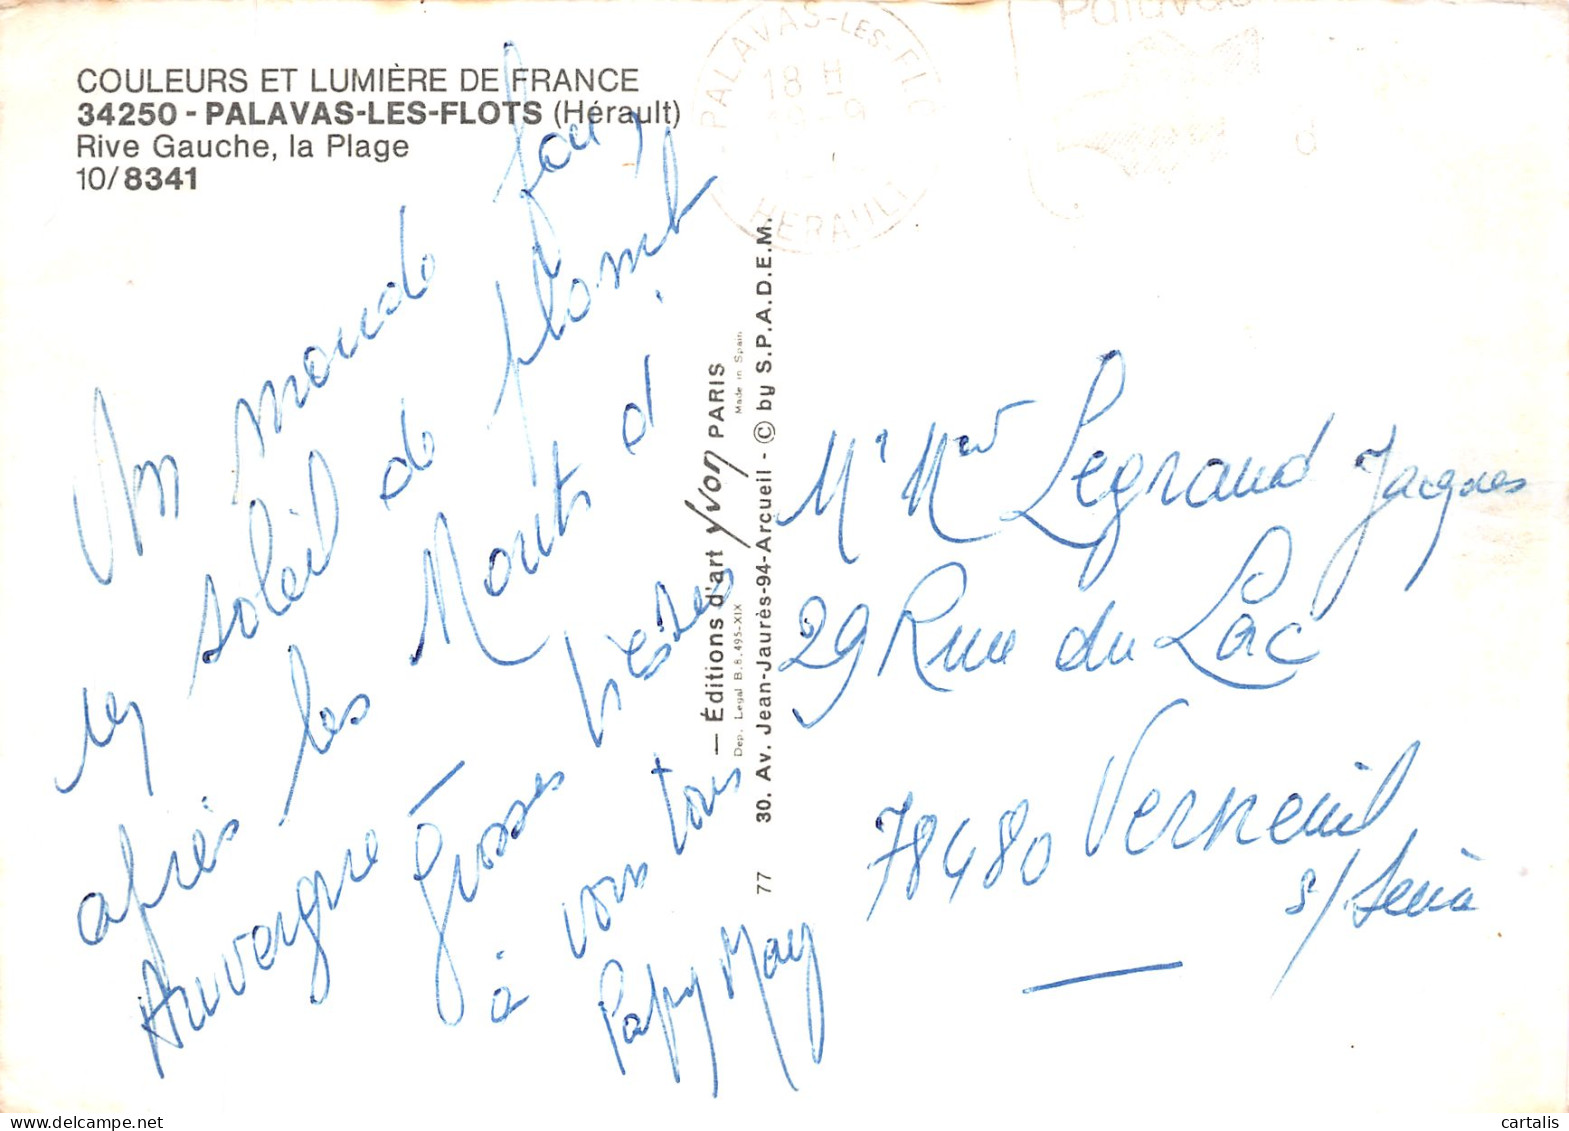 COULEURS ET LUMIÈRE DE FRANCE
34250 - PALAVAS-LES-FLOTS (Hérault)
Rive Gauche, la Plage
10/8341
Un monde fou,
un soleil de plomb
après les Monts d'
Auvergne –
Grosses bises
à vous tous
Papy May
— Éditions d'art yvon PARIS
Dep. Legal B.8.495-XIX
Made in Spain
77 30. Av. Jean-Jaurès-94-Arcueil - © by S.P.A.D.E.M.
PALAVAS-LES-FLO
18 H
HERAULT
Palavas
Mr Mme Legrand Jacques
29 Rue du Lac
78480 Verneuil
s/Seine
cartalis